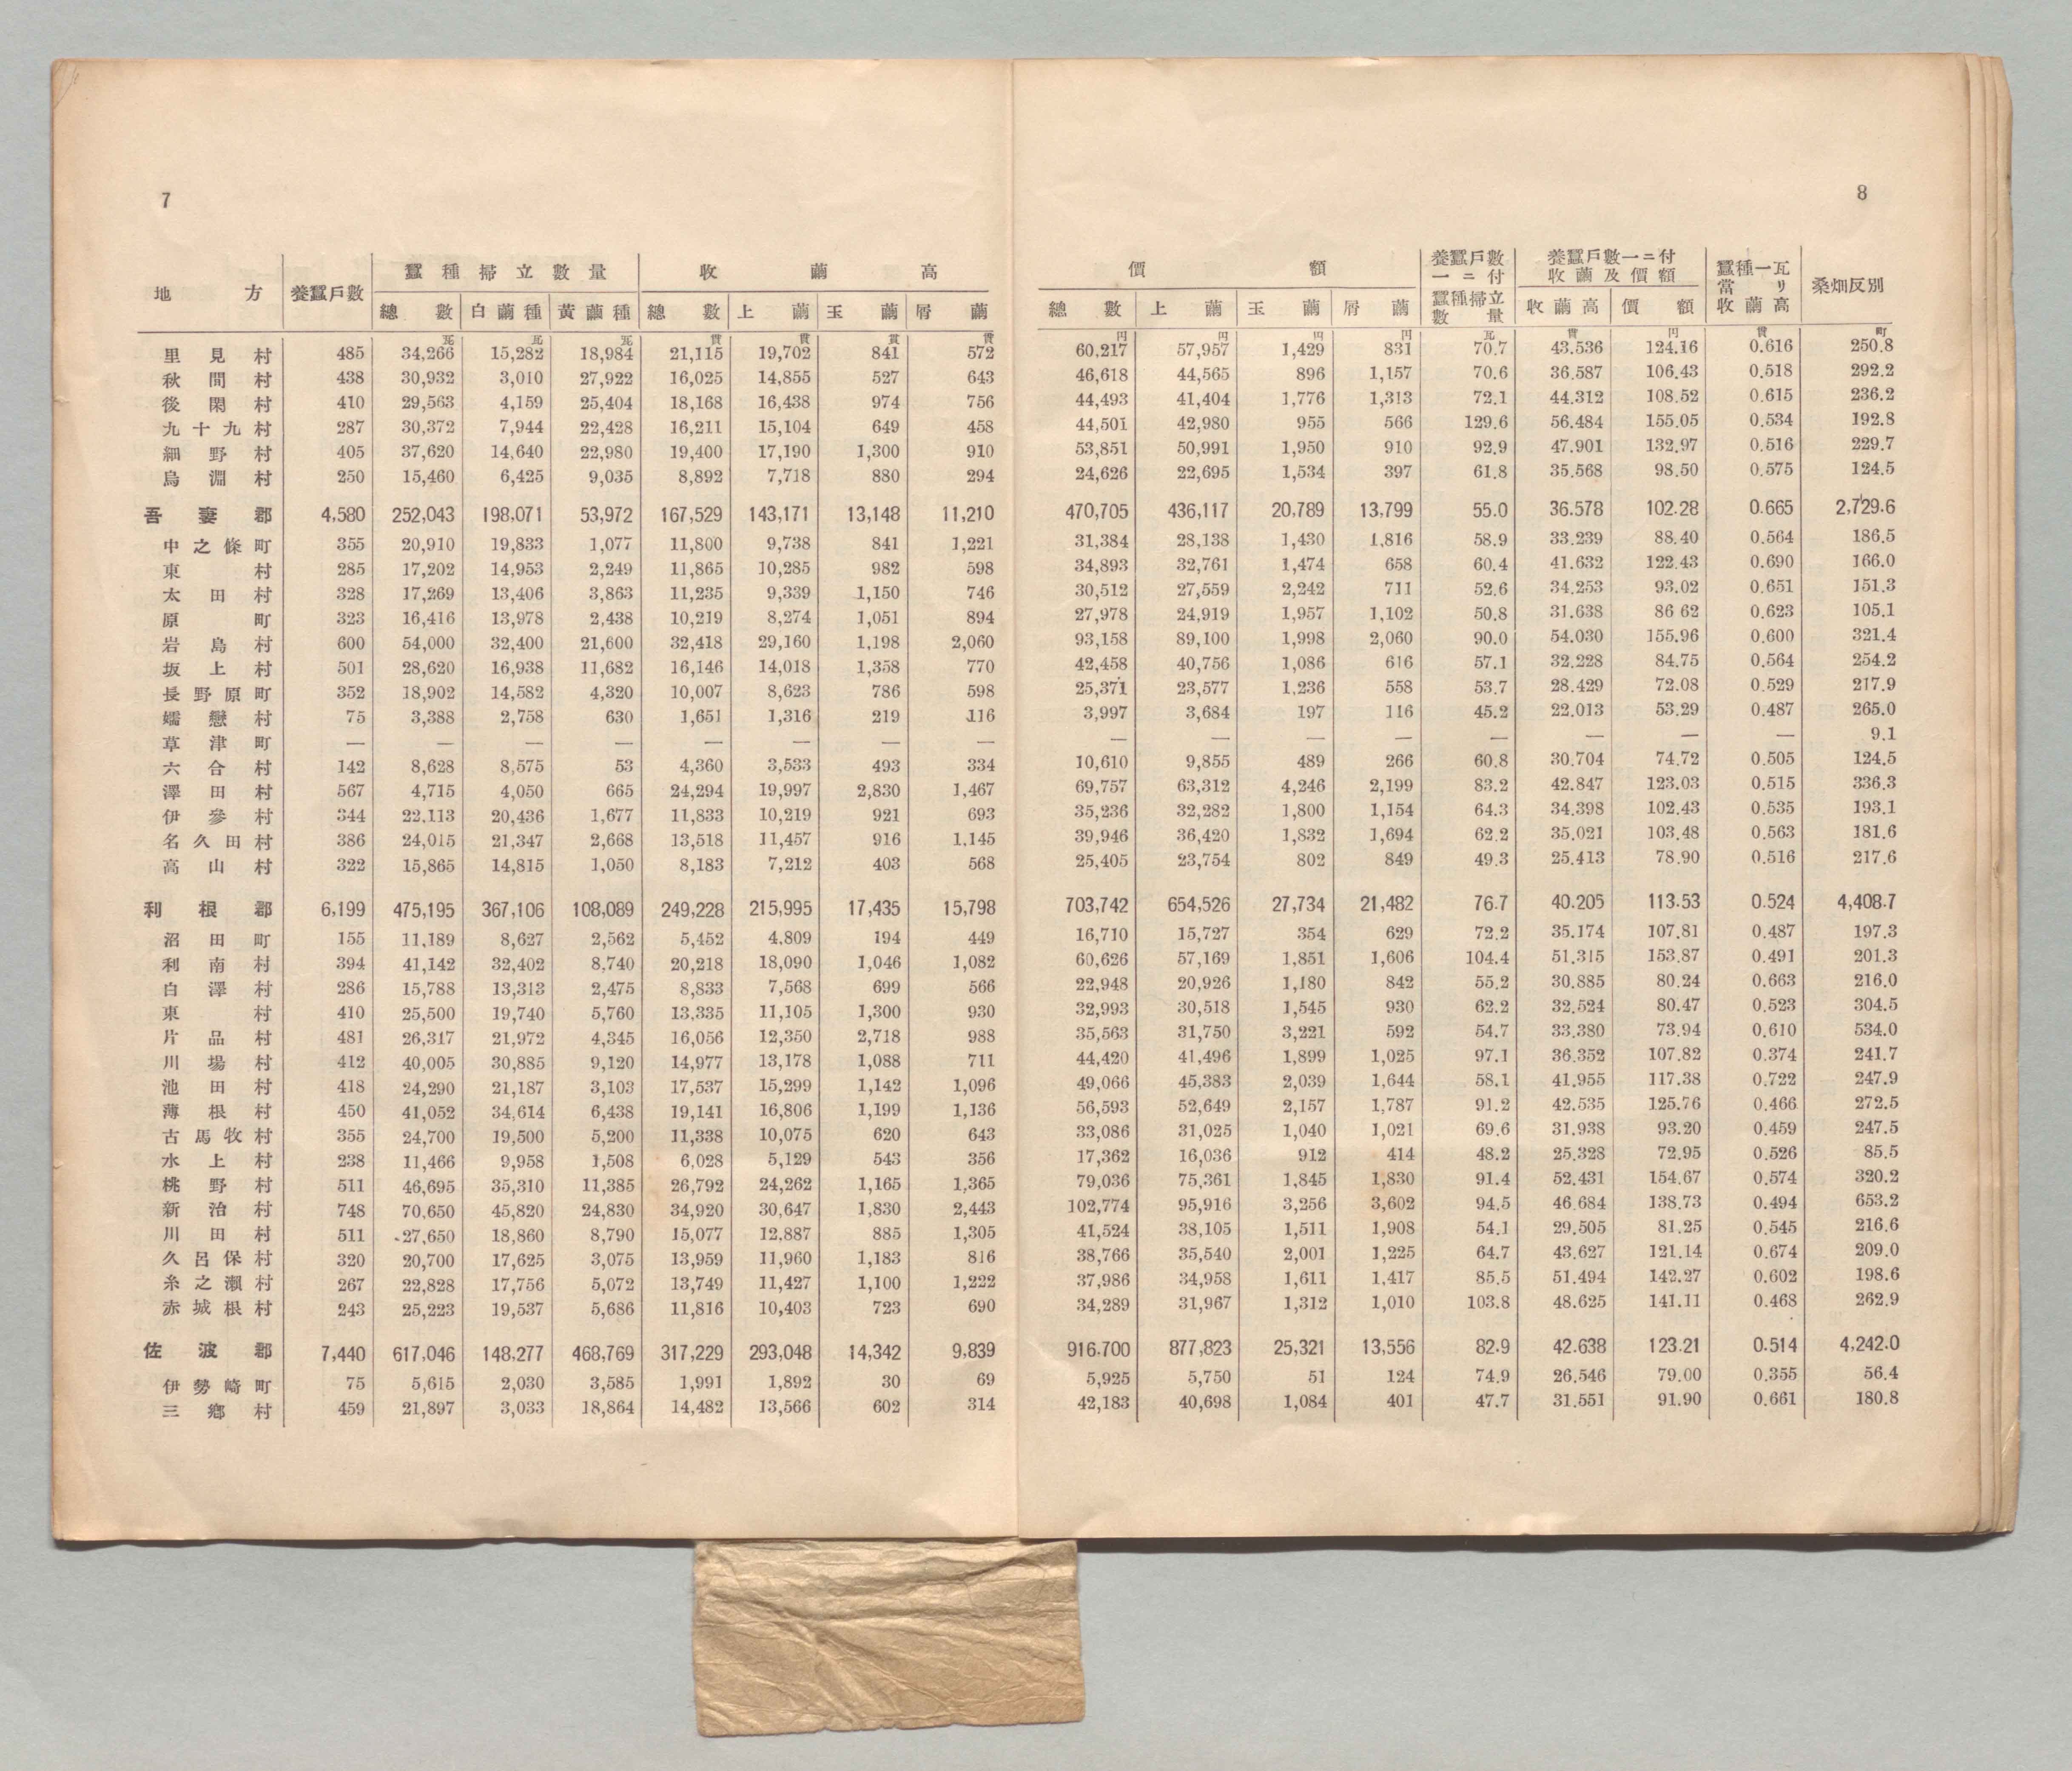 7
地方 養蠶戶數 蠶種掃立數量 收繭高
總數 白繭種 黃繭種 總數 上繭 玉繭 屑繭
瓦 瓦 瓦 貫 貫 貫 貫
里見村 485 34,266 15,282 18,984 21,115 19,702 841 572
秋間村 438 30,932 3,010 27,922 16,025 14,855 527 643
後閑村 410 29,563 4,159 25,404 18,168 16,438 974 756
九十九村 287 30,372 7,944 22,428 16,211 15,104 649 458
細野村 405 37,620 14,640 22,980 19,400 17,190 1,300 910
烏淵村 250 15,460 6,425 9,035 8,892 7,718 880 294
吾妻郡 4,580 252,043 198,071 53,972 167,529 143,171 13,148 11,210
中之條町 355 20,910 19,833 1,077 11,800 9,738 841 1,221
東村 285 17,202 14,953 2,249 11,865 10,285 982 598
太田村 328 17,269 13,406 3,863 11,235 9,339 1,150 746
原町 323 16,416 13,978 2,438 10,219 8,274 1,051 894
岩島村 600 54,000 32,400 21,600 32,418 29,160 1,198 2,060
坂上村 501 28,620 16,938 11,682 16,146 14,018 1,358 770
長野原町 352 18,902 14,582 4,320 10,007 8,623 786 598
嬬戀村 75 3,388 2,758 630 1,651 1,316 219 116
草津町 — — — — — — — —
六合村 142 8,628 8,575 53 4,360 3,533 493 334
澤田村 567 4,715 4,050 665 24,294 19,997 2,830 1,467
伊參村 344 22,113 20,436 1,677 11,833 10,219 921 693
名久田村 386 24,015 21,347 2,668 13,518 11,457 916 1,145
高山村 322 15,865 14,815 1,050 8,183 7,212 403 568
利根郡 6,199 475,195 367,106 108,089 249,228 215,995 17,435 15,798
沼田町 155 11,189 8,627 2,562 5,452 4,809 194 449
利南村 394 41,142 32,402 8,740 20,218 18,090 1,046 1,082
白澤村 286 15,788 13,313 2,475 8,833 7,568 699 566
東村 410 25,500 19,740 5,760 13,335 11,105 1,300 930
片品村 481 26,317 21,972 4,345 16,056 12,350 2,718 988
川場村 412 40,005 30,885 9,120 14,977 13,178 1,088 711
池田村 418 24,290 21,187 3,103 17,537 15,299 1,142 1,096
薄根村 450 41,052 34,614 6,438 19,141 16,806 1,199 1,136
古馬牧村 355 24,700 19,500 5,200 11,338 10,075 620 643
水上村 238 11,466 9,958 1,508 6,028 5,129 543 356
桃野村 511 46,695 35,310 11,385 26,792 24,262 1,165 1,365
新治村 748 70,650 45,820 24,830 34,920 30,647 1,830 2,443
川田村 511 27,650 18,860 8,790 15,077 12,887 885 1,305
久呂保村 320 20,700 17,625 3,075 13,959 11,960 1,183 816
糸之瀬村 267 22,828 17,756 5,072 13,749 11,427 1,100 1,222
赤城根村 243 25,223 19,537 5,686 11,816 10,403 723 690
佐波郡 7,440 617,046 148,277 468,769 317,229 293,048 14,342 9,839
伊勢崎町 75 5,615 2,030 3,585 1,991 1,892 30 69
三鄉村 459 21,897 3,033 18,864 14,482 13,566 602 314
8
價額 養蠶戶數一ニ付蠶種掃立數量 養蠶戶數一ニ付收繭及價額 蠶種一瓦當リ收繭高 桑畑反別
總數 上繭 玉繭 屑繭 收繭高 價額
円 円 円 円 瓦 貫 円 貫 町
60,217 57,957 1,429 831 70.7 43.536 124.16 0.616 250.8
46,618 44,565 896 1,157 70.6 36.587 106.43 0.518 292.2
44,493 41,404 1,776 1,313 72.1 44.312 108.52 0.615 236.2
44,501 42,980 955 566 129.6 56.484 155.05 0.534 192.8
53,851 50,991 1,950 910 92.9 47.901 132.97 0.516 229.7
24,626 22,695 1,534 397 61.8 35.568 98.50 0.575 124.5
470,705 436,117 20,789 13,799 55.0 36.578 102.28 0.665 2,729.6
31,384 28,138 1,430 1,816 58.9 33.239 88.40 0.564 186.5
34,893 32,761 1,474 658 60.4 41.632 122.43 0.690 166.0
30,512 27,559 2,242 711 52.6 34.253 93.02 0.651 151.3
27,978 24,919 1,957 1,102 50.8 31.638 86 62 0.623 105.1
93,158 89,100 1,998 2,060 90.0 54.030 155.96 0.600 321.4
42,458 40,756 1,086 616 57.1 32.228 84.75 0.564 254.2
25,371 23,577 1,236 558 53.7 28.429 72.08 0.529 217.9
3,997 3,684 197 116 45.2 22.013 53.29 0.487 265.0
— — — — — — — — 9.1
10,610 9,855 489 266 60.8 30.704 74.72 0.505 124.5
69,757 63,312 4,246 2,199 83.2 42.847 123.03 0.515 336.3
35,236 32,282 1,800 1,154 64.3 34.398 102.43 0.535 193.1
39,946 36,420 1,832 1,694 62.2 35.021 103.48 0.563 181.6
25,405 23,754 802 849 49.3 25.413 78.90 0.516 217.6
703,742 654,526 27,734 21,482 76.7 40.205 113.53 0.524 4,408.7
16,710 15,727 354 629 72.2 35.174 107.81 0.487 197.3
60,626 57,169 1,851 1,606 104.4 51.315 153.87 0.491 201.3
22,948 20,926 1,180 842 55.2 30.885 80.24 0.663 216.0
32,993 30,518 1,545 930 62.2 32.524 80.47 0.523 304.5
35,563 31,750 3,221 592 54.7 33.380 73.94 0.610 534.0
44,420 41,496 1,899 1,025 97.1 36.352 107.82 0.374 241.7
49,066 45,383 2,039 1,644 58.1 41.955 117.38 0.722 247.9
56,593 52,649 2,157 1,787 91.2 42.535 125.76 0.466 272.5
33,086 31,025 1,040 1,021 69.6 31.938 93.20 0.459 247.5
17,362 16,036 912 414 48.2 25.328 72.95 0.526 85.5
79,036 75,361 1,845 1,830 91.4 52.431 154.67 0.574 320.2
102,774 95,916 3,256 3,602 94.5 46.684 138.73 0.494 653.2
41,524 38,105 1,511 1,908 54.1 29.505 81.25 0.545 216.6
38,766 35,540 2,001 1,225 64.7 43.627 121.14 0.674 209.0
37,986 34,958 1,611 1,417 85.5 51.494 142.27 0.602 198.6
34,289 31,967 1,312 1,010 103.8 48.625 141.11 0.468 262.9
916.700 877,823 25,321 13,556 82.9 42.638 123.21 0.514 4,242.0
5,925 5,750 51 124 74.9 26.546 79.00 0.355 56.4
42,183 40,698 1,084 401 47.7 31.551 91.90 0.661 180.8